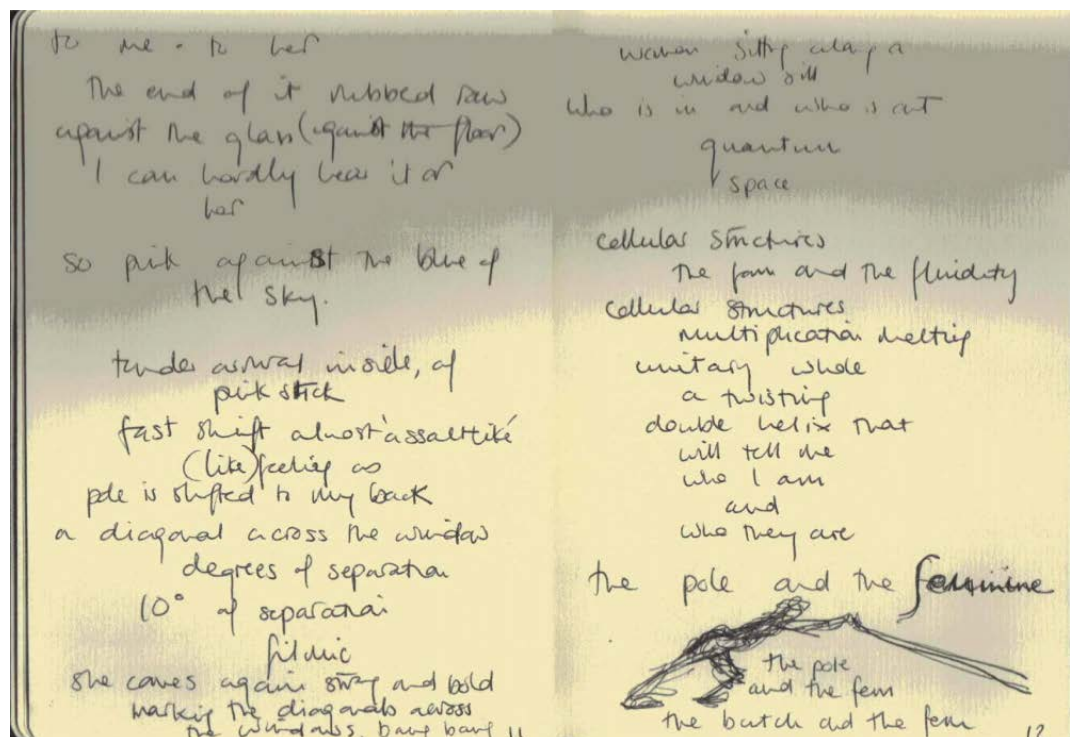 to me - to her
The end of it rubbed raw
against the glass (against the floor)
I can hardly hear it or
her
so pink against the blue of
the sky.
tender arrival inside, of
pink stick
fast shift almost 'assaltlike'
(like) feeling as
pole is shifted to my back
a diagonal across the window
degrees of separation
10° of separation
filmic
she comes again strong and bold
marking the diagonals across
the windows, bang bang
11
women sitting along a
window sill
who is in and who is out
quantum
space
cellular structures
the form and the fluidity
cellular structures
multiplication melting
unitary whole
a twisting
double helix that
will tell me
who I am
and
who they are
the pole and the feminine
the pole
and the fem
the butch and the fem
12